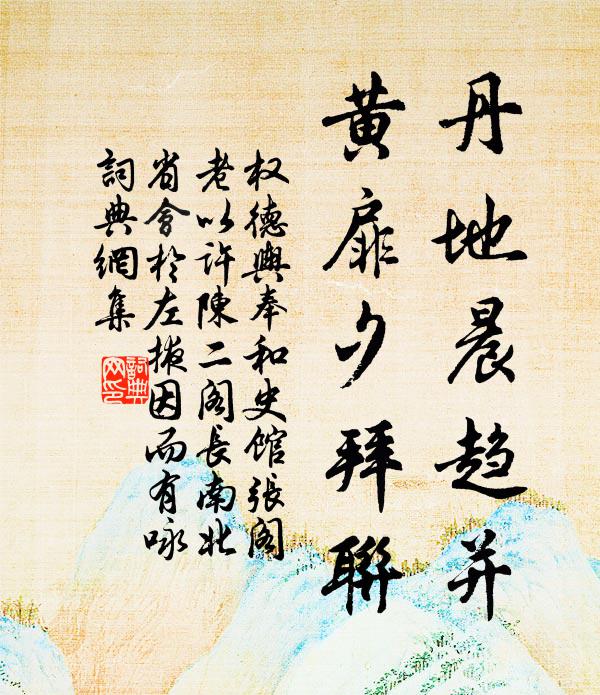 丹地晨趋并
黄扉夕拜聯
权德輿奉和史馆張阁
老以许陳二阁長南北
省會於左掖因而有咏
詞典網集
詞典
网印